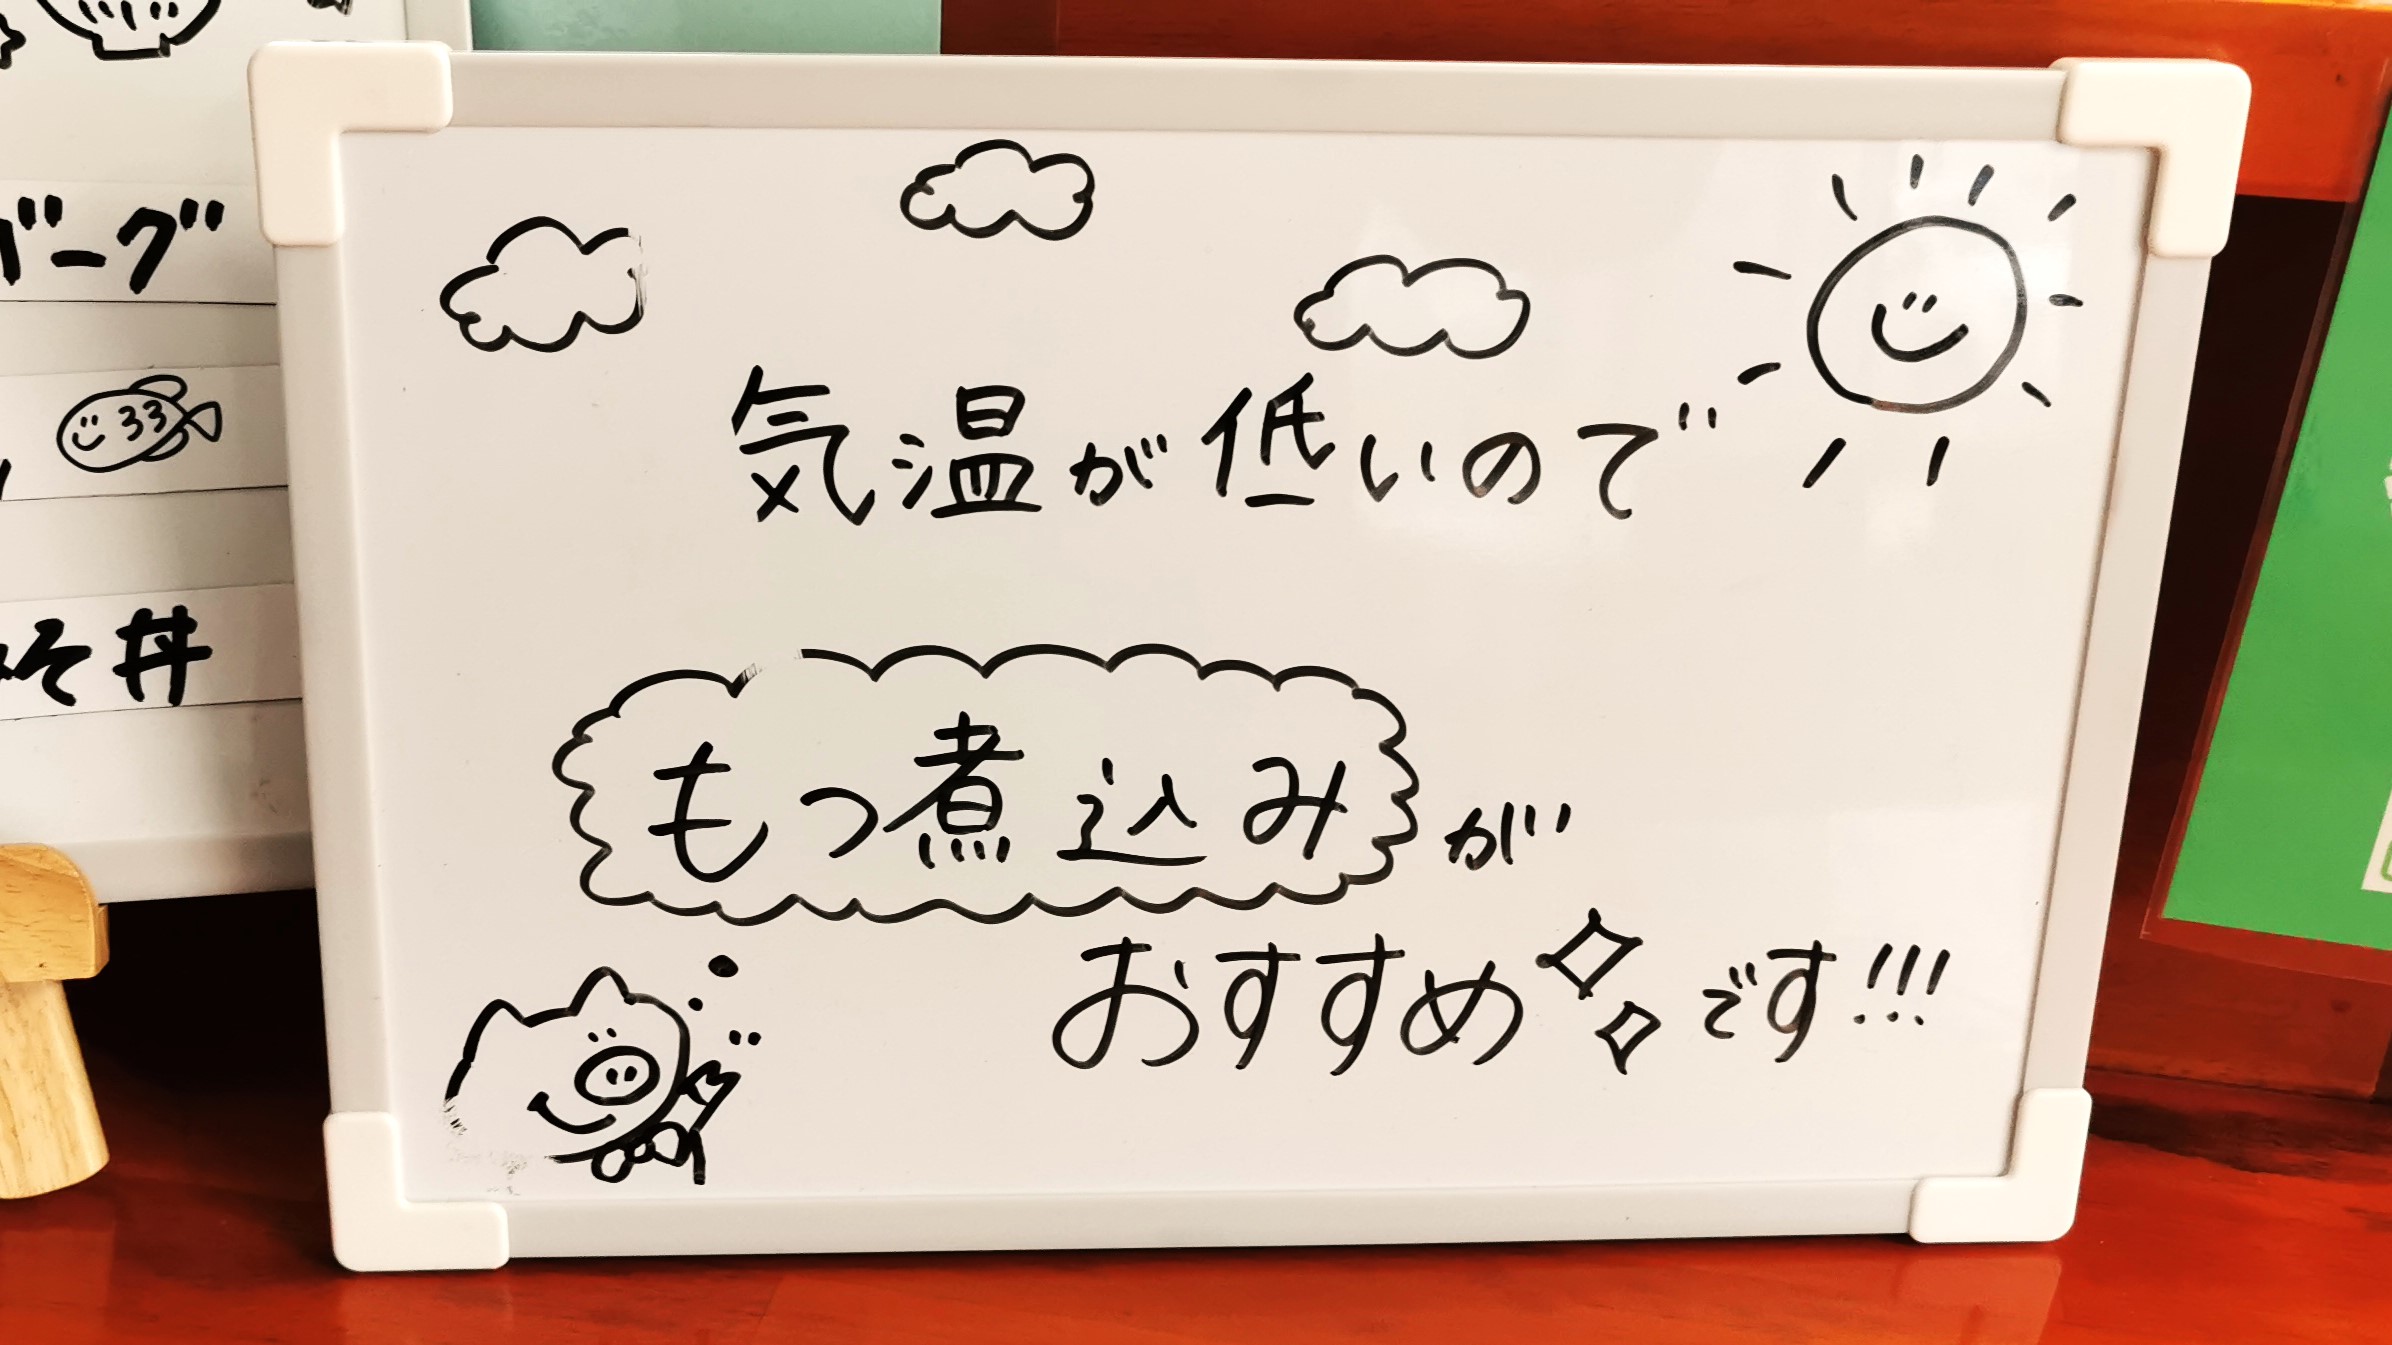 気温が低いので
もつ煮込みが
おすすめです!!!
バーグ
そ丼